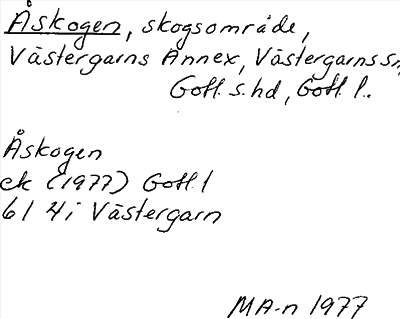 Åskogen, skogsområde,
Västergarns Annex, Västergarns sn,
Gotl. s. hd, Gotl. l.
Åskogen
ek (1977) Gotl l
6I 4i Västergarn
MA-n 1977